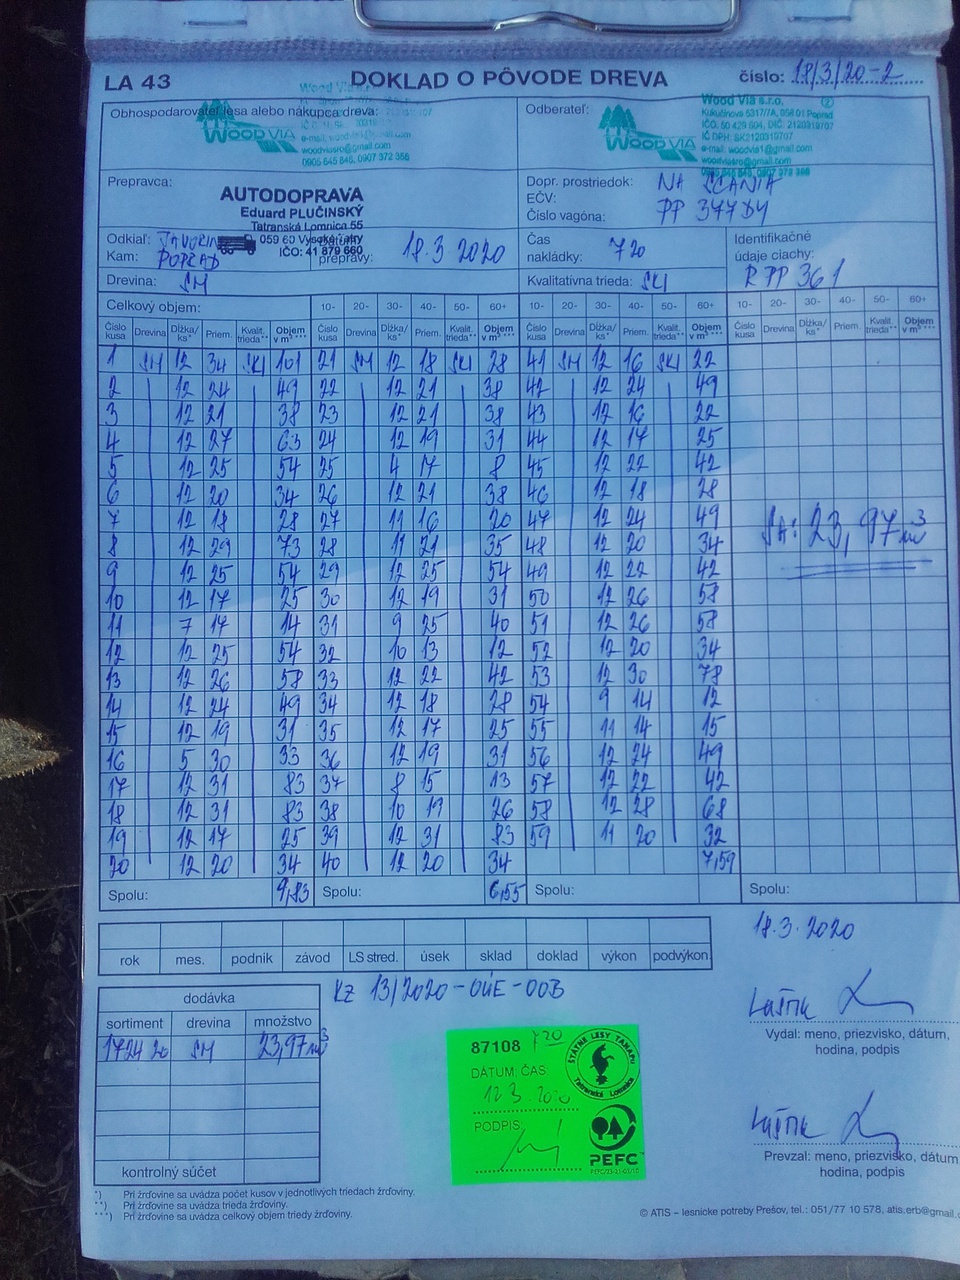 LA 43 DOKLAD O PÔVODE DREVA číslo: 18/3/20-2
Obhospodarovateľ lesa alebo nákupca dreva:
WOOD VIA
woodviasro@gmail.com
0905 645 846, 0907 372 356
Odberateľ:
WOOD VIA
Wood Via s.r.o. 2
Kukučínova 5317/7A, 058 01 Poprad
IČO: 50 429 604, DIČ: 2120319707
IČ DPH: SK2120319707
e-mail: woodvia1@gmail.com
woodviasro@gmail.com
0905 645 846, 0907 372 356
Prepravca:
AUTODOPRAVA
Eduard PLUČINSKÝ
Tatranská Lomnica 55
059 60 Vysoké Tatry
IČO: 41 879 660
Dopr. prostriedok: NA SCANIA
EČV:
Číslo vagóna: PP 377DY
Odkiaľ: JAVORINA
Kam: POPRAD
prepravy: 18.3 2020
Čas
nakládky: 720
Identifikačné
údaje ciachy:
R PP 361
Drevina: SM
Kvalitatívna trieda: SKI
Celkový objem: 10- 20- 30- 40- 50- 60+ 10- 20- 30- 40- 50- 60+ 10- 20- 30- 40- 50- 60+
Číslo kusa Drevina Dĺžka/ ks* Priem. Kvalit. trieda** Objem v m³ *** Číslo kusa Drevina Dĺžka/ ks* Priem. Kvalit. trieda** Objem v m³ *** Číslo kusa Drevina Dĺžka/ ks* Priem. Kvalit. trieda** Objem v m³ *** Číslo kusa Drevina Dĺžka/ ks* Priem. Kvalit. trieda** Objem v m³ ***
1 SM 12 34 SKI 101 21 SM 12 18 SKI 28 41 SM 12 16 SKI 22
2 12 24 49 22 12 21 38 42 12 24 49
3 12 21 38 23 12 21 38 43 12 16 22
4 12 27 63 24 12 19 31 44 12 17 25
5 12 25 54 25 4 17 8 45 12 22 42
6 12 20 34 26 12 21 38 46 12 18 28
7 12 18 28 27 11 16 20 47 12 24 49
8 12 29 73 28 11 21 35 48 12 20 34
SM: 23,97 m3
9 12 25 54 29 12 25 54 49 12 22 42
10 12 17 25 30 12 19 31 50 12 26 58
11 7 17 14 31 9 25 40 51 12 26 58
12 12 25 54 32 10 13 12 52 12 20 34
13 12 26 58 33 12 22 42 53 12 30 78
14 12 24 49 34 12 18 28 54 9 14 12
15 12 19 31 35 12 17 25 55 11 14 15
16 5 30 33 36 12 19 31 56 12 24 49
17 12 31 83 37 8 15 13 57 12 22 42
18 12 31 83 38 10 19 26 58 12 28 68
19 12 17 25 39 12 31 83 59 11 20 32
20 12 20 34 40 12 20 34 7,59
Spolu: 9,83 Spolu: 6,55 Spolu: Spolu:
rok mes. podnik závod LS stred. úsek sklad doklad výkon podvýkon
18.3.2020
KZ 13/2020-OÚE-OOB
dodávka
sortiment drevina množstvo
SM 23,97 m3
kontrolný súčet
87108 720
DÁTUM, ČAS:
3. 2020
PODPIS
ŠTÁTNE LESY TANAPU
Tatranská Lomnica
PEFC
Vydal: meno, priezvisko, dátum,
hodina, podpis
Prevzal: meno, priezvisko, dátum
hodina, podpis
*) Pri žrďovine sa uvádza počet kusov v jednotlivých triedach žrďoviny.
**) Pri žrďovine sa uvádza trieda žrďoviny.
***) Pri žrďovine sa uvádza celkový objem triedy žrďoviny.
© ATIS – lesnícke potreby Prešov, tel.: 051/77 10 578, atis.erb@gmail.